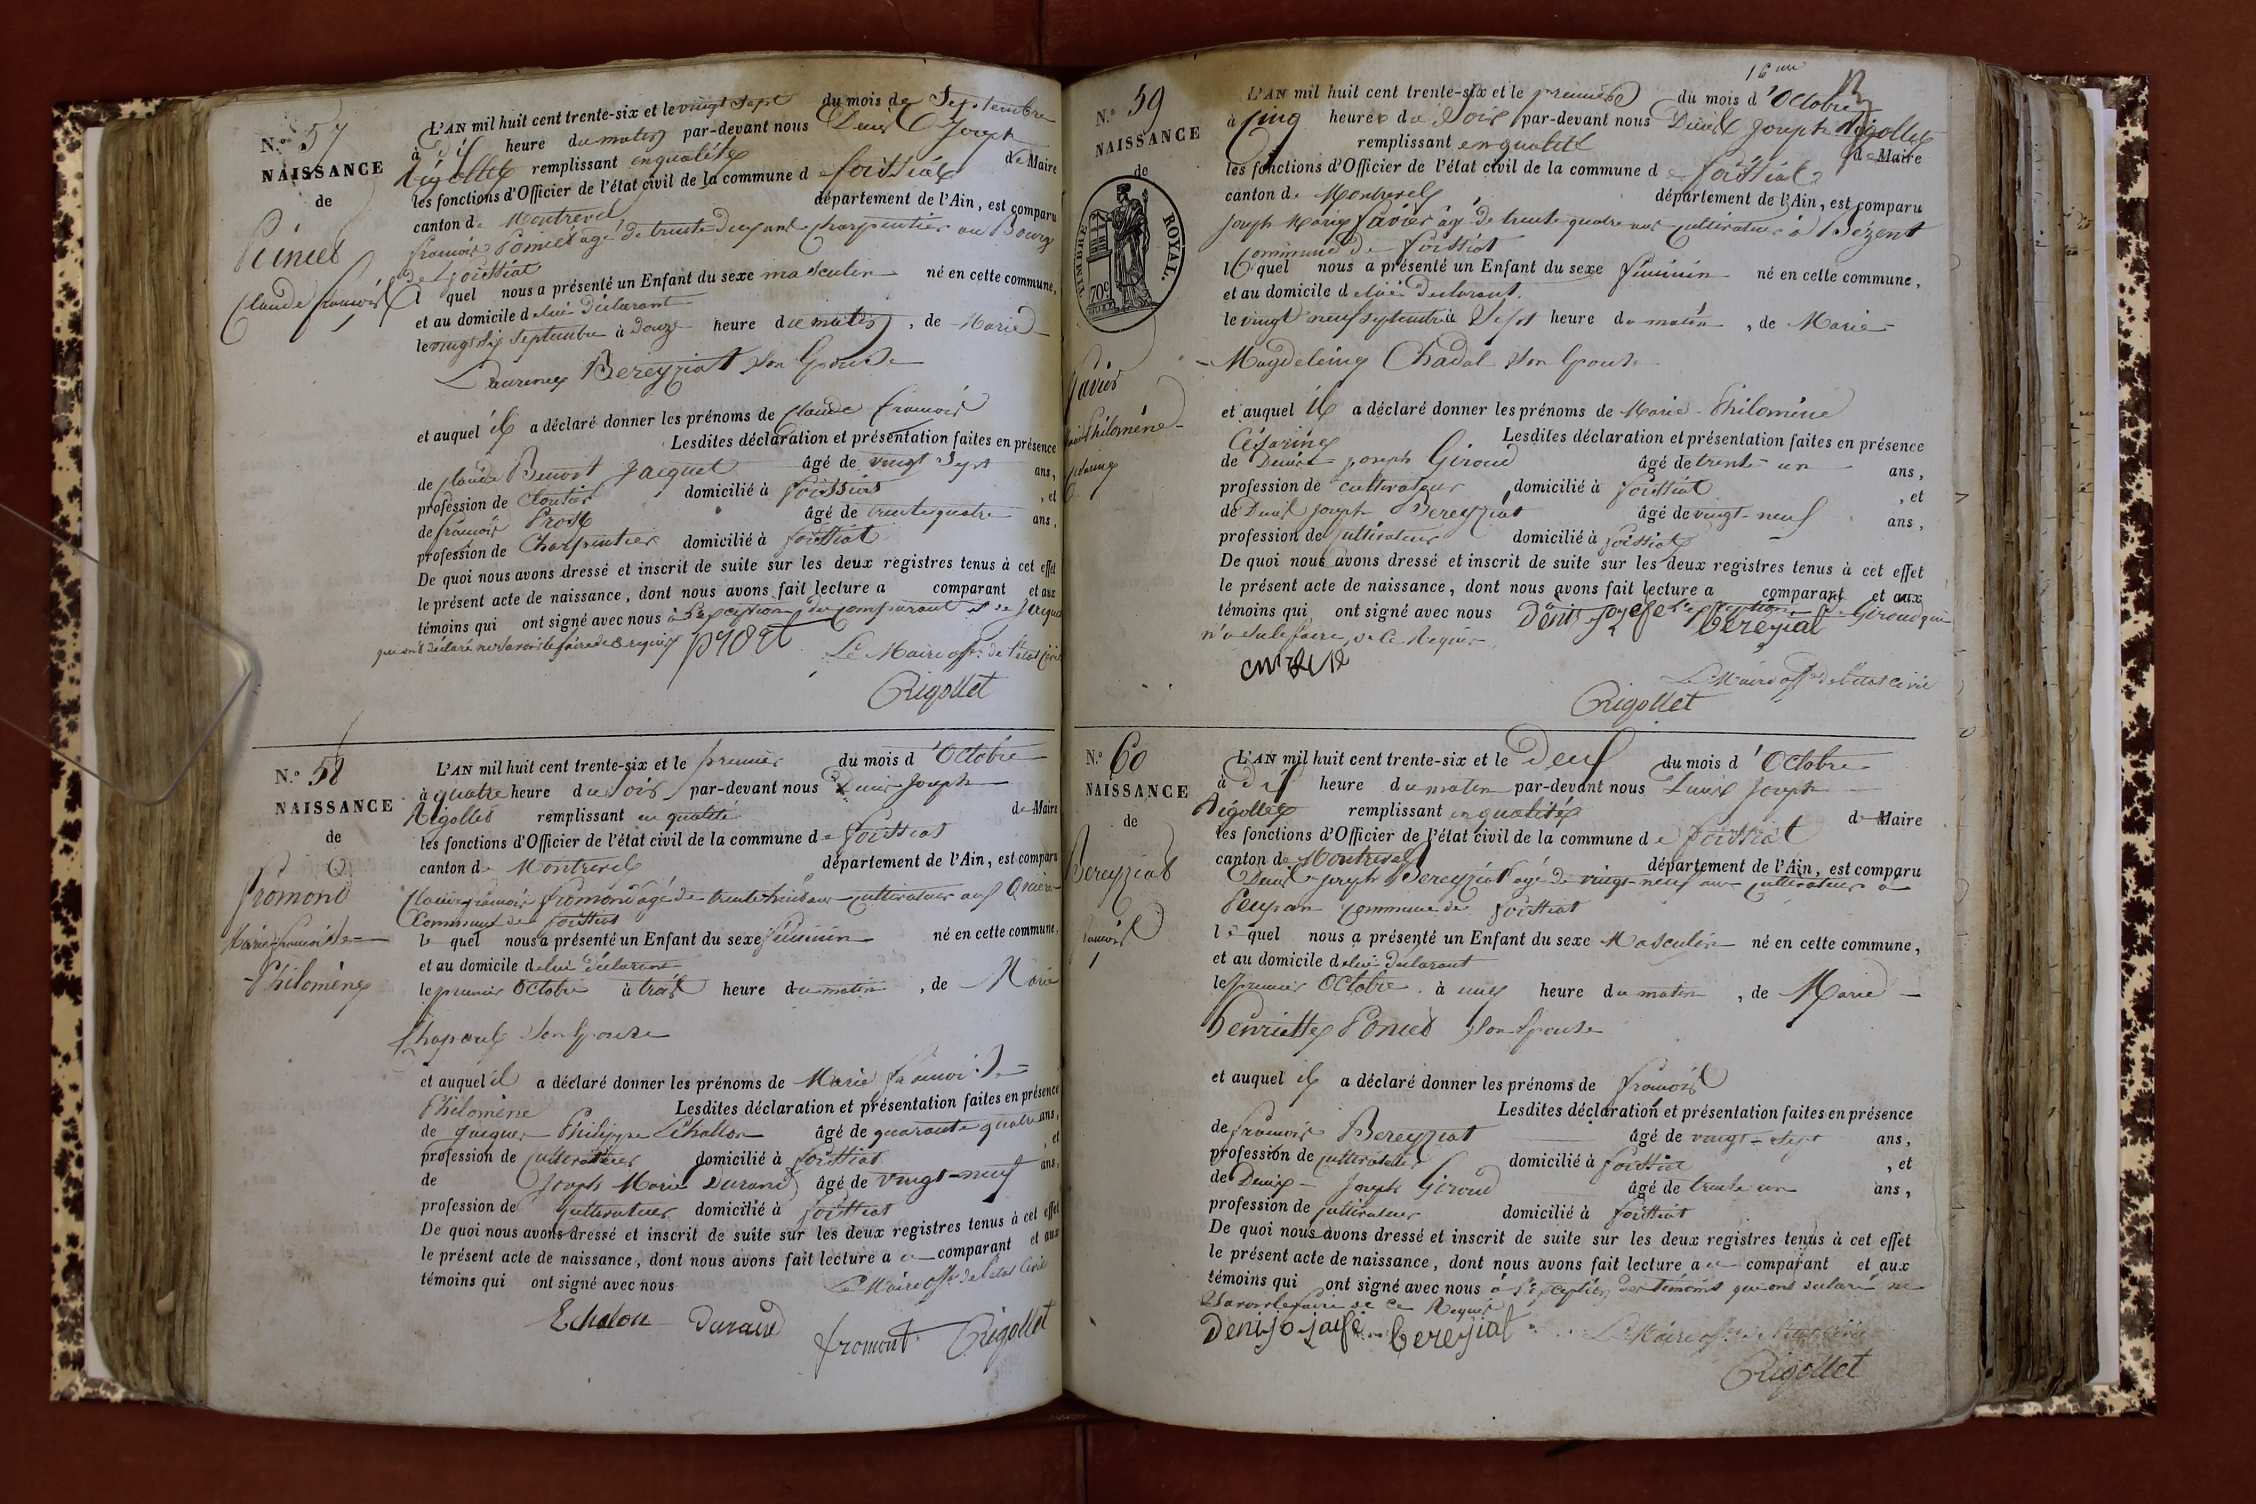 N.° 57
NAISSANCE
de
Poncet
Claude François
L'AN mil huit cent trente-six et le vingt sept du mois de Septembre
à dix heure du matin par-devant nous Denis Joseph
Rigollet remplissant en qualité de Maire
les fonctions d'Officier de l'état civil de la commune de foissiat
canton de Montrevel département de l'Ain, est comparu
françois Poncet âgé de trente deux ans charpentier au Bourg
de foissiat
l quel nous a présenté un Enfant du sexe masculin né en cette commune,
et au domicile de lui déclarant
le vingt six Septembre à douze heure du matin, de Marie
Laurence Bereyziat son épouse
et auquel il a déclaré donner les prénoms de Claude françois
Lesdites déclaration et présentation faites en présence
de Claude Benoit Jacquet âgé de vingt sept ans,
profession de cloutier domicilié à foissiat, et
de françois Prost âgé de trente quatre ans,
profession de Charpentier domicilié à foissiat
De quoi nous avons dressé et inscrit de suite sur les deux registres tenus à cet effet
le présent acte de naissance, dont nous avons fait lecture a comparant et aux
témoins qui ont signé avec nous à l'exception du comparant et de Jacquet
qui ont déclaré ne savoir le faire de ce requis prost Le Maire off. de l'état Civil
Rigollet
N.° 58
NAISSANCE
de
fromond
Marie françoise
Philomène
L'AN mil huit cent trente-six et le premier du mois d'Octobre
à quatre heure du soir par-devant nous Denis Joseph
Rigollet remplissant en qualité de Maire
les fonctions d'Officier de l'état civil de la commune de foissiat
canton de Montrevel département de l'Ain, est comparu
Claude françois fromond âgé de trente huit ans cultivateur aux
Commune de foissiat
le quel nous a présenté un Enfant du sexe féminin né en cette commune,
et au domicile de lui déclarant
le premier Octobre à trois heure du matin, de Marie
Chapuis son épouse
et auquel il a déclaré donner les prénoms de Marie françoise
Philomène Lesdites déclaration et présentation faites en présence
de Jacques Philippe Echallon âgé de quarante quatre ans,
profession de cultivateur domicilié à foissiat, et
de Joseph Marie Durand âgé de vingt-neuf ans,
profession de cultivateur domicilié à foissiat
De quoi nous avons dressé et inscrit de suite sur les deux registres tenus à cet effet
le présent acte de naissance, dont nous avons fait lecture a u comparant et aux
témoins qui ont signé avec nous Le Maire off. de l'état Civil
Echalon Durand fromont Rigollet
16
N.° 59
NAISSANCE
de
TIMBRE ROYAL.
70c
Savier
Marie Philomène
Césarine
L'AN mil huit cent trente-six et le premier du mois d'Octobre
à Cinq heures du Soir par-devant nous Denis Joseph Rigollet
remplissant en qualité de Maire
les fonctions d'Officier de l'état civil de la commune de foissiat
canton de Montrevel département de l'Ain, est comparu
Joseph Marie Savier âgé de trente quatre ans cultivateur à Bézent
Commune de foissiat
le quel nous a présenté un Enfant du sexe féminin né en cette commune,
et au domicile de lui déclarant.
le vingt neuf septembre à sept heure du matin, de Marie
Magdeleine Chadal son épouse
et auquel il a déclaré donner les prénoms de Marie Philomène
Césarine Lesdites déclaration et présentation faites en présence
de Denis Joseph Giroud âgé de trente un ans,
profession de cultivateur domicilié à foissiat, et
de Denis Joseph Bereyziat âgé de vingt-neuf ans,
profession de cultivateur domicilié à foissiat
De quoi nous avons dressé et inscrit de suite sur les deux registres tenus à cet effet
le présent acte de naissance, dont nous avons fait lecture a comparant et aux
témoins qui ont signé avec nous à l'exception de Giroud qui
n'a su le faire de ce Requis Denis Josefe bereziat
Le Maire off. de l'état Civil
Rigollet
N.° 60
NAISSANCE
de
Bereyziat
françois
L'AN mil huit cent trente-six et le Deux du mois d'Octobre
à dix heure du matin par-devant nous Denis Joseph
Rigollet remplissant en qualité de Maire
les fonctions d'Officier de l'état civil de la commune de foissiat
canton de Montrevel département de l'Ain, est comparu
Denis Joseph Bereyziat âgé de vingt-neuf ans cultivateur à
commune de foissiat
le quel nous a présenté un Enfant du sexe Masculin né en cette commune,
et au domicile de lui déclarant
le premier Octobre à une heure du matin, de Marie
henriette Poncet son épouse
et auquel il a déclaré donner les prénoms de françois
Lesdites déclaration et présentation faites en présence
de françois Bereyziat âgé de vingt-sept ans,
profession de cultivateur domicilié à foissiat, et
de Denis Joseph Giroud âgé de trente un ans,
profession de cultivateur domicilié à foissiat
De quoi nous avons dressé et inscrit de suite sur les deux registres tenus à cet effet
le présent acte de naissance, dont nous avons fait lecture a u comparant et aux
témoins qui ont signé avec nous à l'exception des témoins qui ont déclaré ne
savoir le faire de ce Requis
Denijo jaife bereyiat Le Maire off. de l'état Civil
Rigollet